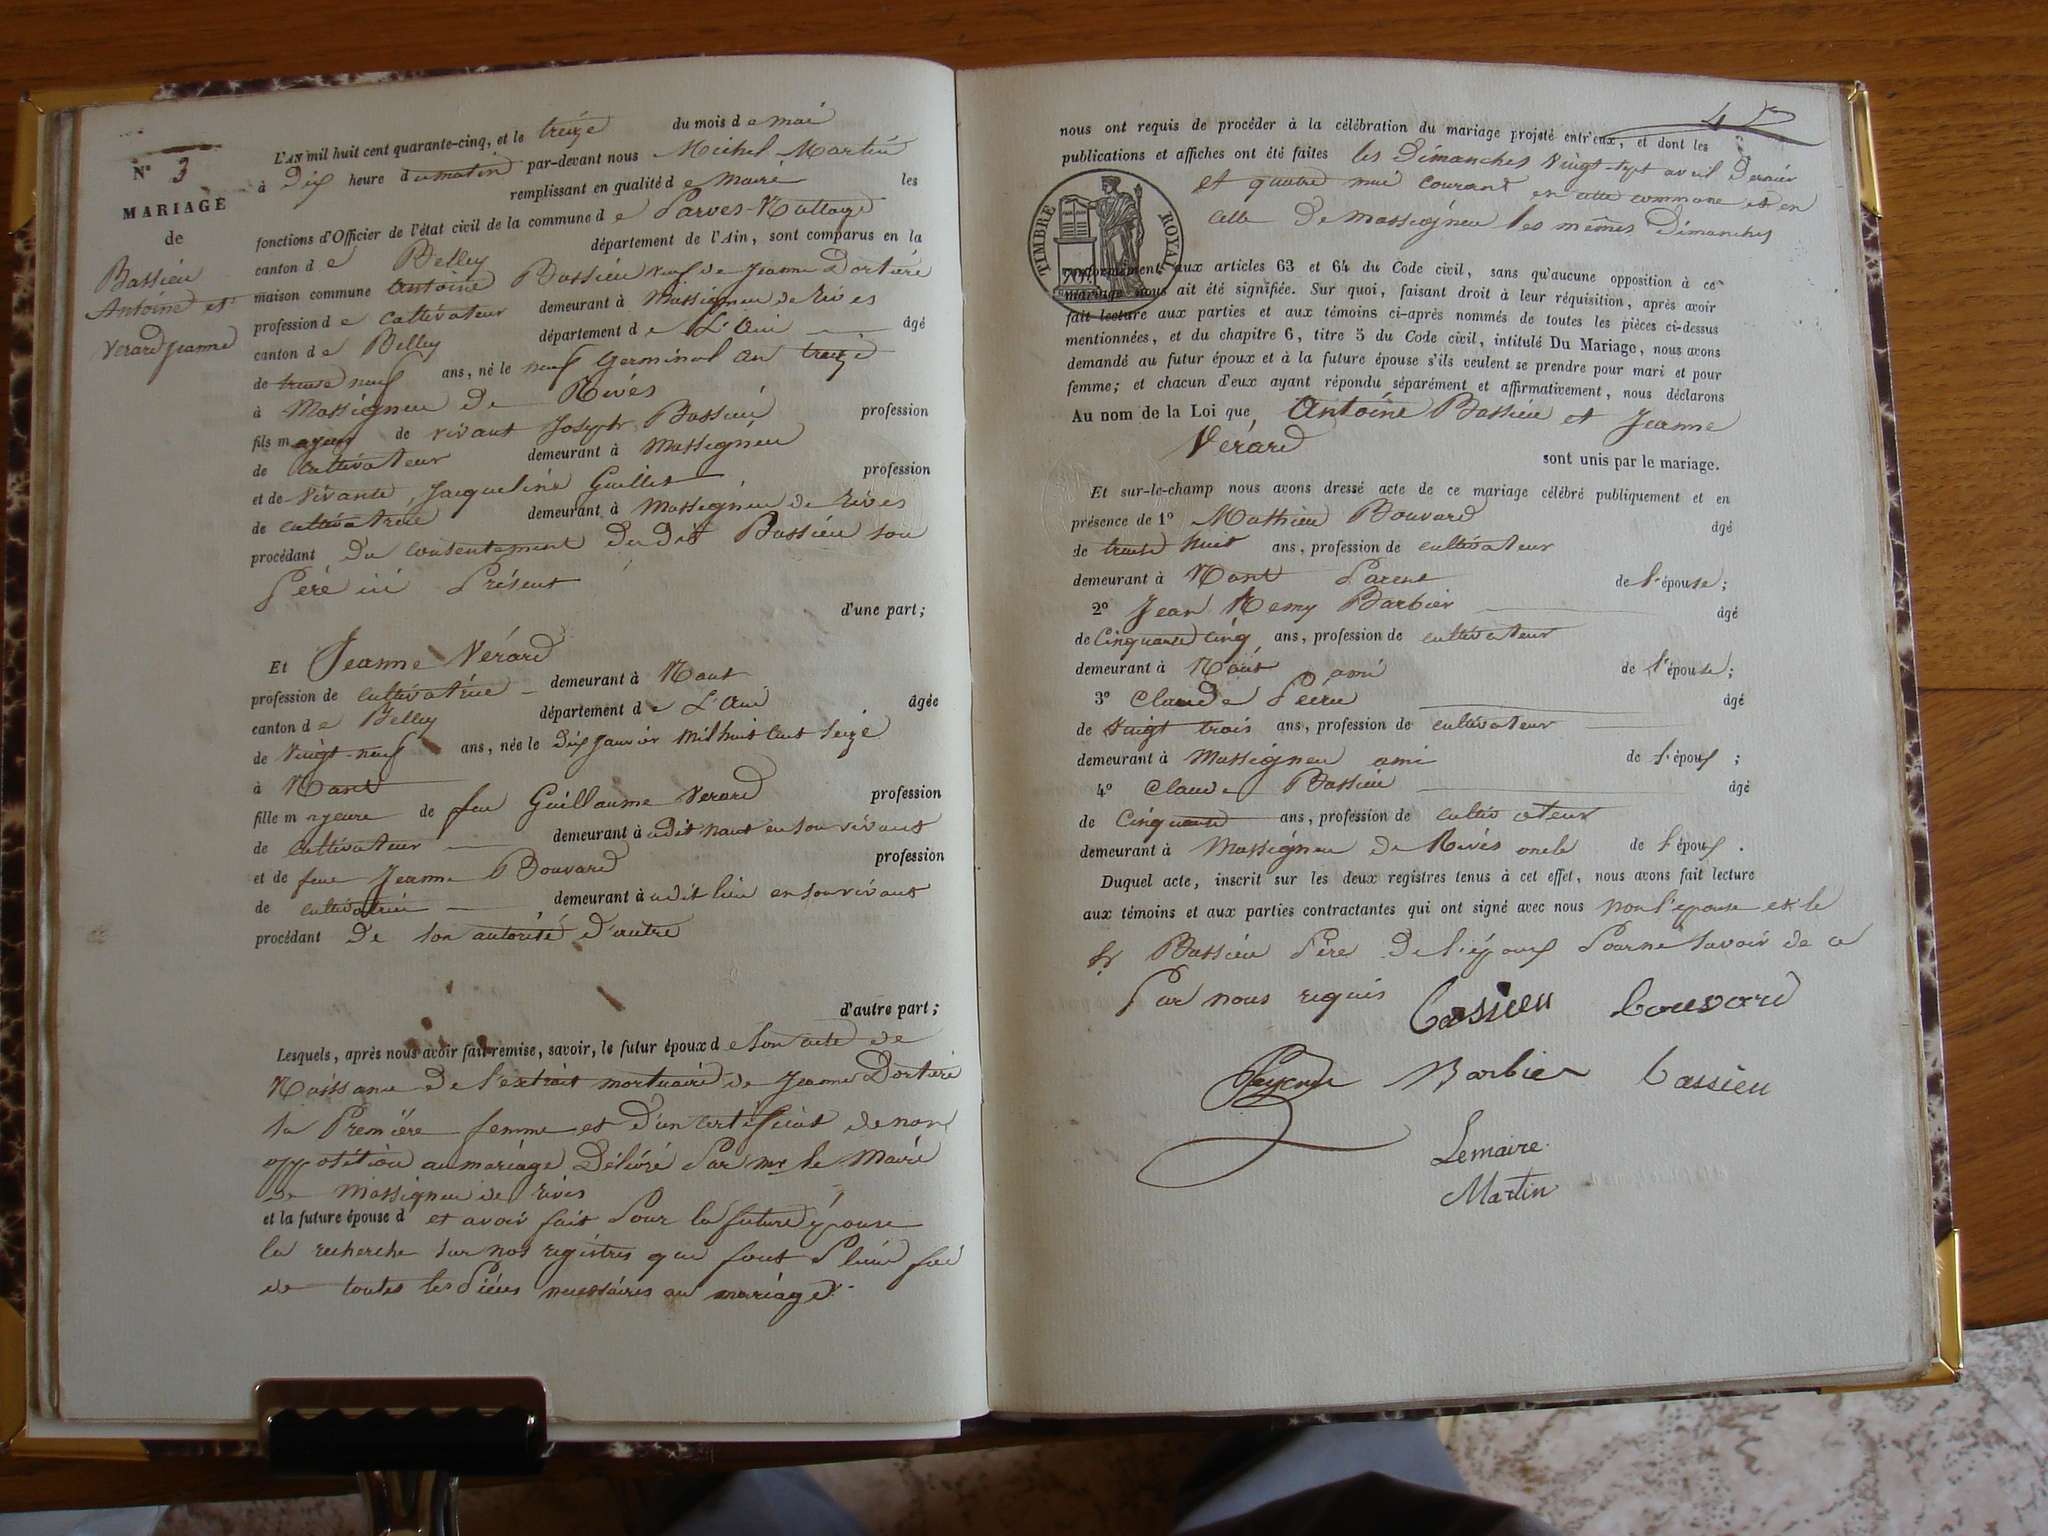 N° 3
MARIAGE
de
Bassieu
Antoine et
Verard Jeanne
L'AN mil huit cent quarante-cinq, et le treize du mois de mai
à Dix heure du matin par-devant nous Michel Martin
remplissant en qualité de Maire les
fonctions d'Officier de l'état civil de la commune de Parves-Nattage
canton de Belley département de l'Ain, sont comparus en la
maison commune Antoine Bassieu veuf de Jeanne Dortière
profession de cultivateur demeurant à Massigneu de Rives
canton de Belley département de L'Ain âgé
de trente neuf ans, né le neuf germinal an treize
à Massigneu de Rives
fils majeur de vivant Joseph Bassieu profession
de cultivateur demeurant à Massigneu
et de vivante Jacqueline Guillet profession
de cultivatrice demeurant à Massigneu de Rives
procédant Du consentement du dit Bassieu son
Père ici Présent
d'une part;
Et Jeanne Vérard
profession de cultivatrice demeurant à Nant
canton de Belley département de L'Ain âgée
de vingt-neuf ans, née le dix janvier mil huit cent seize
à Nant
fille majeure de feu Guillaume Verard profession
de cultivateur demeurant à udit Nant en son vivant
et de feue Jeanne Bouvard profession
de cultivatrice demeurant à udit lieu en son vivant
procédant De son autorité d'autre
d'autre part;
Lesquels, après nous avoir fait remise, savoir, le futur époux de son acte de
Naissance De l'extrait mortuaire de Jeanne Dortière
sa Première femme et D'un certificat de non
opposition au mariage Délivré Par mr le Maire
de Massigneu de rives
et la future épouse d et avoir fait Pour la future épouse
la recherche sur nos registres qui font Pleine foi
de toutes les Pièces necessaires au mariage
nous ont requis de procéder à la célébration du mariage projeté entr'eux, et dont les
publications et affiches ont été faites les Dimanches vingt-sept avril Dernier
et quatre mai courant en cette commune et en
celle De Massigneu les mêmes Dimanches
TIMBRE ROYAL
conformément aux articles 63 et 64 du Code civil, sans qu'aucune opposition à ce
mariage nous ait été signifiée. Sur quoi, faisant droit à leur réquisition, après avoir
fait lecture aux parties et aux témoins ci-après nommés de toutes les pièces ci-dessus
mentionnées, et du chapitre 6, titre 5 du Code civil, intitulé Du Mariage, nous avons
demandé au futur époux et à la future épouse s'ils veulent se prendre pour mari et pour
femme; et chacun d'eux ayant répondu séparément et affirmativement, nous déclarons
Au nom de la Loi que Antoine Bassieu et Jeanne
Vérard
sont unis par le mariage.
Et sur-le-champ nous avons dressé acte de ce mariage célébré publiquement et en
présence de 1° Mathieu Bouvard âgé
de trente huit ans, profession de cultivateur
demeurant à Nant Parent de l'épouse;
2° Jean Remy Barbier âgé
de Cinquante cinq ans, profession de cultivateur
demeurant à Nant ami de l'épouse;
3° Claude âgé
de vingt trois ans, profession de cultivateur
demeurant à Massigneu ami de l'époux;
4° Claude Bassieu âgé
de Cinquante ans, profession de cultivateur
demeurant à Massigneu de Rives oncle de l'époux.
Duquel acte, inscrit sur les deux registres tenus à cet effet, nous avons fait lecture
aux témoins et aux parties contractantes qui ont signé avec nous non l'epouse et le
sr Bassieu Père De l'époux Pour ne savoir de ce
Par nous requis
bassieu bouvard
Barbier bassieu
Lemaire
Martin